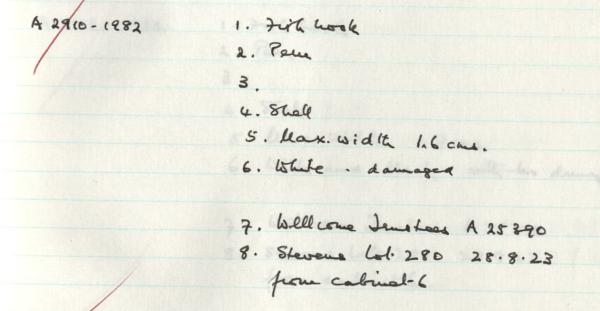 A 2910-1982 1. Fish hook
2. Peru
3.
4. Shell
5. Max. width 1.6 cms.
6. White - damaged
7. Wellcome Trustees A 25390
8. Stevens Lot. 280 28.8.23
from cabinet 6